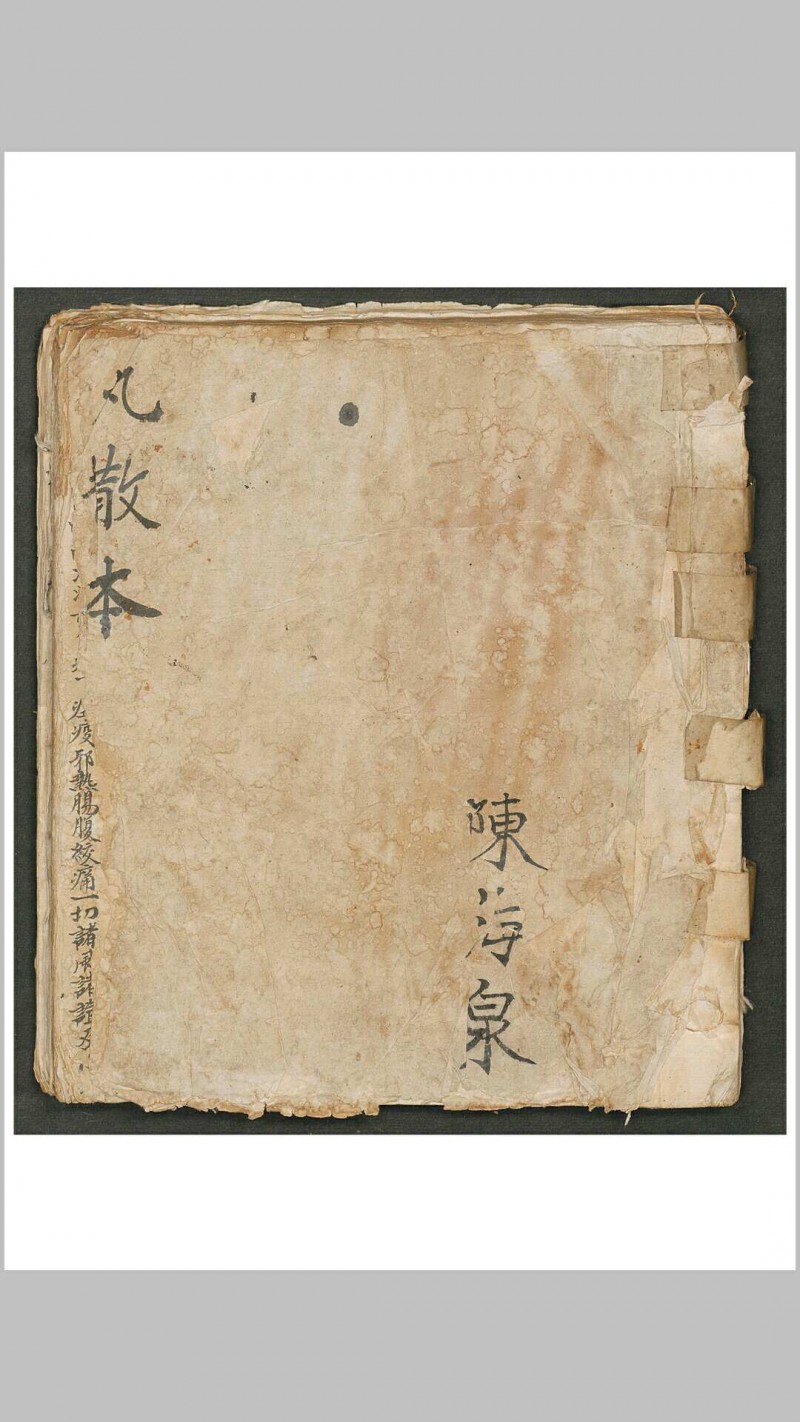 陳海泉
散本
疫邪熱腸腹絞痛一切諸風諸證